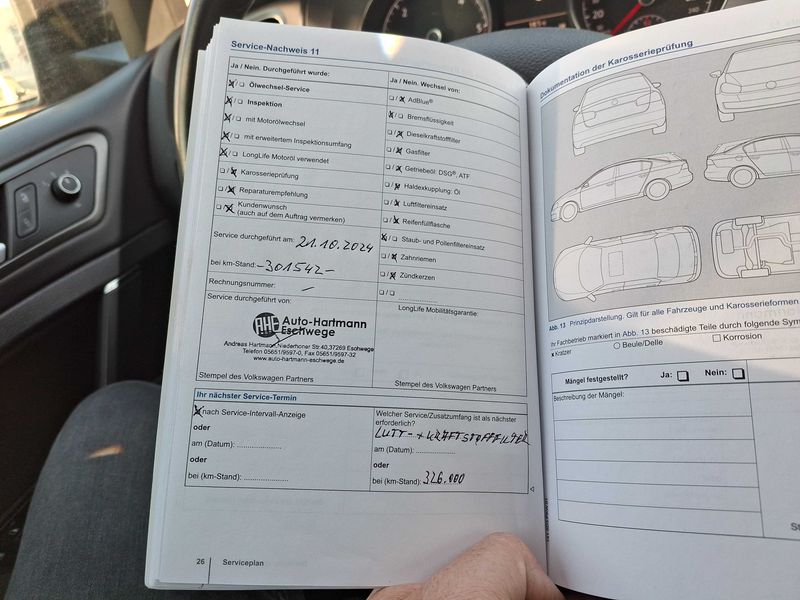 Service-Nachweis 11
Ja / Nein. Durchgeführt wurde:
Ölwechsel-Service
Inspektion
mit Motorölwechsel
mit erweitertem Inspektionsumfang
LongLife Motoröl verwendet
Karosserieprüfung
Reparaturempfehlung
Kundenwunsch
(auch auf dem Auftrag vermerken)
Service durchgeführt am: 21.10.2024
bei km-Stand: -301542-
Rechnungsnummer: -
Service durchgeführt von:
AHE Auto-Hartmann
Eschwege
Andreas Hartmann, Niederhoner Str.40,37269 Eschwege
Telefon 05651/9597-0, Fax 05651/9597-32
www.auto-hartmann-eschwege.de
Stempel des Volkswagen Partners
Ja / Nein. Wechsel von:
AdBlue®
Bremsflüssigkeit
Dieselkraftstofffilter
Gasfilter
Getriebeöl: DSG®, ATF
Haldexkupplung: Öl
Luftfiltereinsatz
Reifenfüllflasche
Staub- und Pollenfiltereinsatz
Zahnriemen
Zündkerzen
LongLife Mobilitätsgarantie:
Stempel des Volkswagen Partners
Ihr nächster Service-Termin
nach Service-Intervall-Anzeige
oder
am (Datum):
oder
bei (km-Stand):
Welcher Service/Zusatzumfang ist als nächster
erforderlich?
LUFT- + KRAFTSTOFFFILTER
am (Datum):
oder
bei (km-Stand): 326.000
26 Serviceplan
Dokumentation der Karosserieprüfung
Abb. 13 Prinzipdarstellung. Gilt für alle Fahrzeuge und Karosserieformen
Ihr Fachbetrieb markiert in Abb. 13 beschädigte Teile durch folgende Sym
x Kratzer ○ Beule/Delle □ Korrosion
Mängel festgestellt? Ja: Nein:
Beschreibung der Mängel:
St